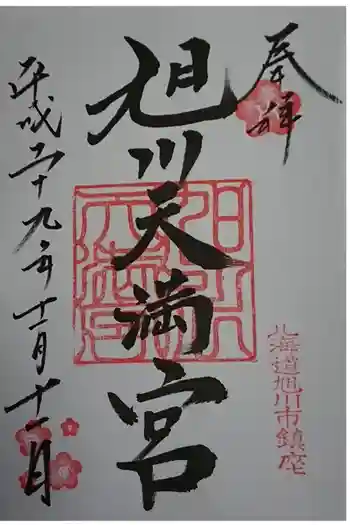 奉拝
北海道旭川市鎮座
旭川天満宮
平成二十九年十一月十一日